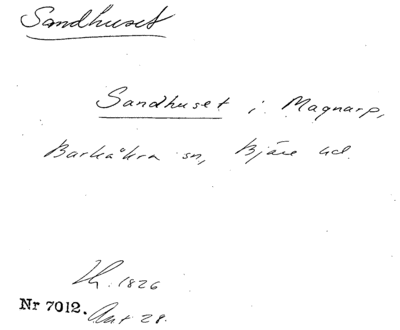 Sandhuset
Sandhuset i Magnarp,
Barkåkra sn, Bjäre hd.
Lh. 1826
Nr 7012. Ant 28.